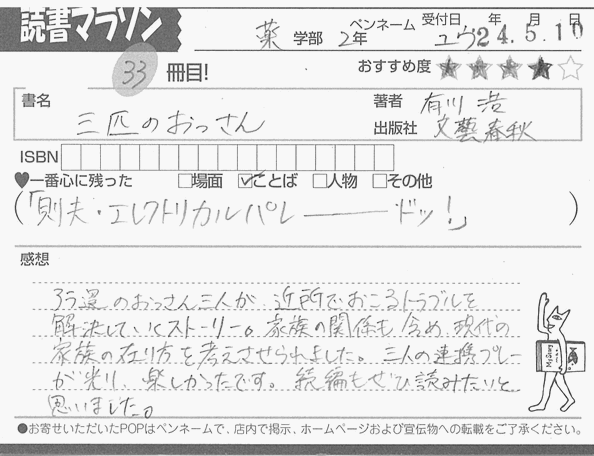 読書マラソン
ペンネーム 受付日 年 月 日
薬 学部 2年 ユウ 24.5.10
33 冊目! おすすめ度 ★★★★☆
書名 三匹のおっさん
著者 有川 浩
出版社 文藝春秋
ISBN
♥一番心に残った □場面 ☑ことば □人物 □その他
(「則夫・エレクトリカルパレ――ドッ!」)
感想
アラ還のおっさん三人が、近所でおこるトラブルを
解決していくストーリー。家族の関係も含め、現代の
家族の在り方を考えさせられました。三人の連携プレー
が光り、楽しかったです。続編もぜひ読みたいと
思いました。
●お寄せいただいたPOPはペンネームで、店内で掲示、ホームページおよび宣伝物への転載をご了承ください。